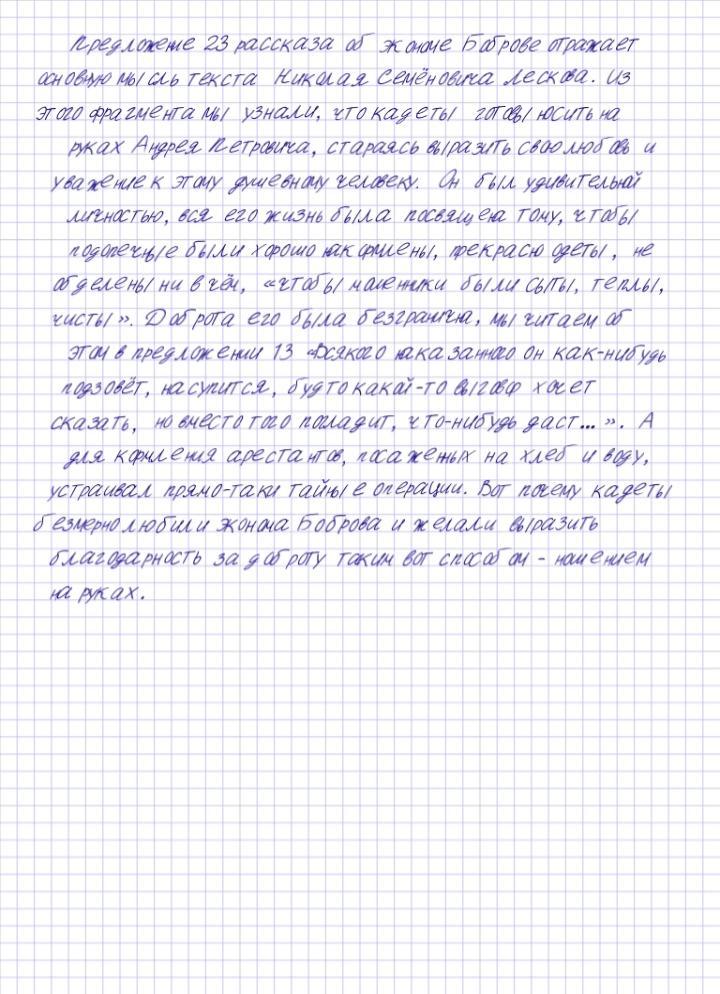 Предложение 23 рассказа об экономе Боброве отражает
основную мысль текста Николая Семёновича Лескова. Из
этого фрагмента мы узнали, что кадеты готовы носить на
руках Андрея Петровича, стараясь выразить свою любовь и
уважение к этому душевному человеку. Он был удивительной
личностью, вся его жизнь была посвящена тому, чтобы
подопечные были хорошо накормлены, прекрасно одеты, не
обделены ни в чём, «чтобы мошенники были сыты, теплы,
чисты». Доброта его была безгранична, мы читаем об
этом в предложении 13 «Всякого наказанного он как-нибудь
подзовёт, насупится, будто какой-то выговор хочет
сказать, но вместо того погладит, что-нибудь даст...». А
для кормления арестантов, посаженных на хлеб и воду,
устраивал прямо-таки тайные операции. Вот почему кадеты
безмерно любили эконома Боброва и желали выразить
благодарность за доброту таким вот способом - ношением
на руках.